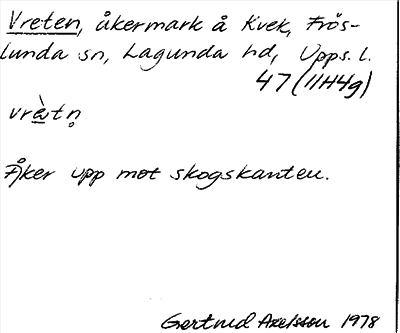 Vreten, åkermark å Kvek, Frös-
lunda sn, Lagunda hd, Upps. l.
47 (11H4g)
vrὲtn̥
Åker upp mot skogskanten.
Gertrud Axelsson 1978